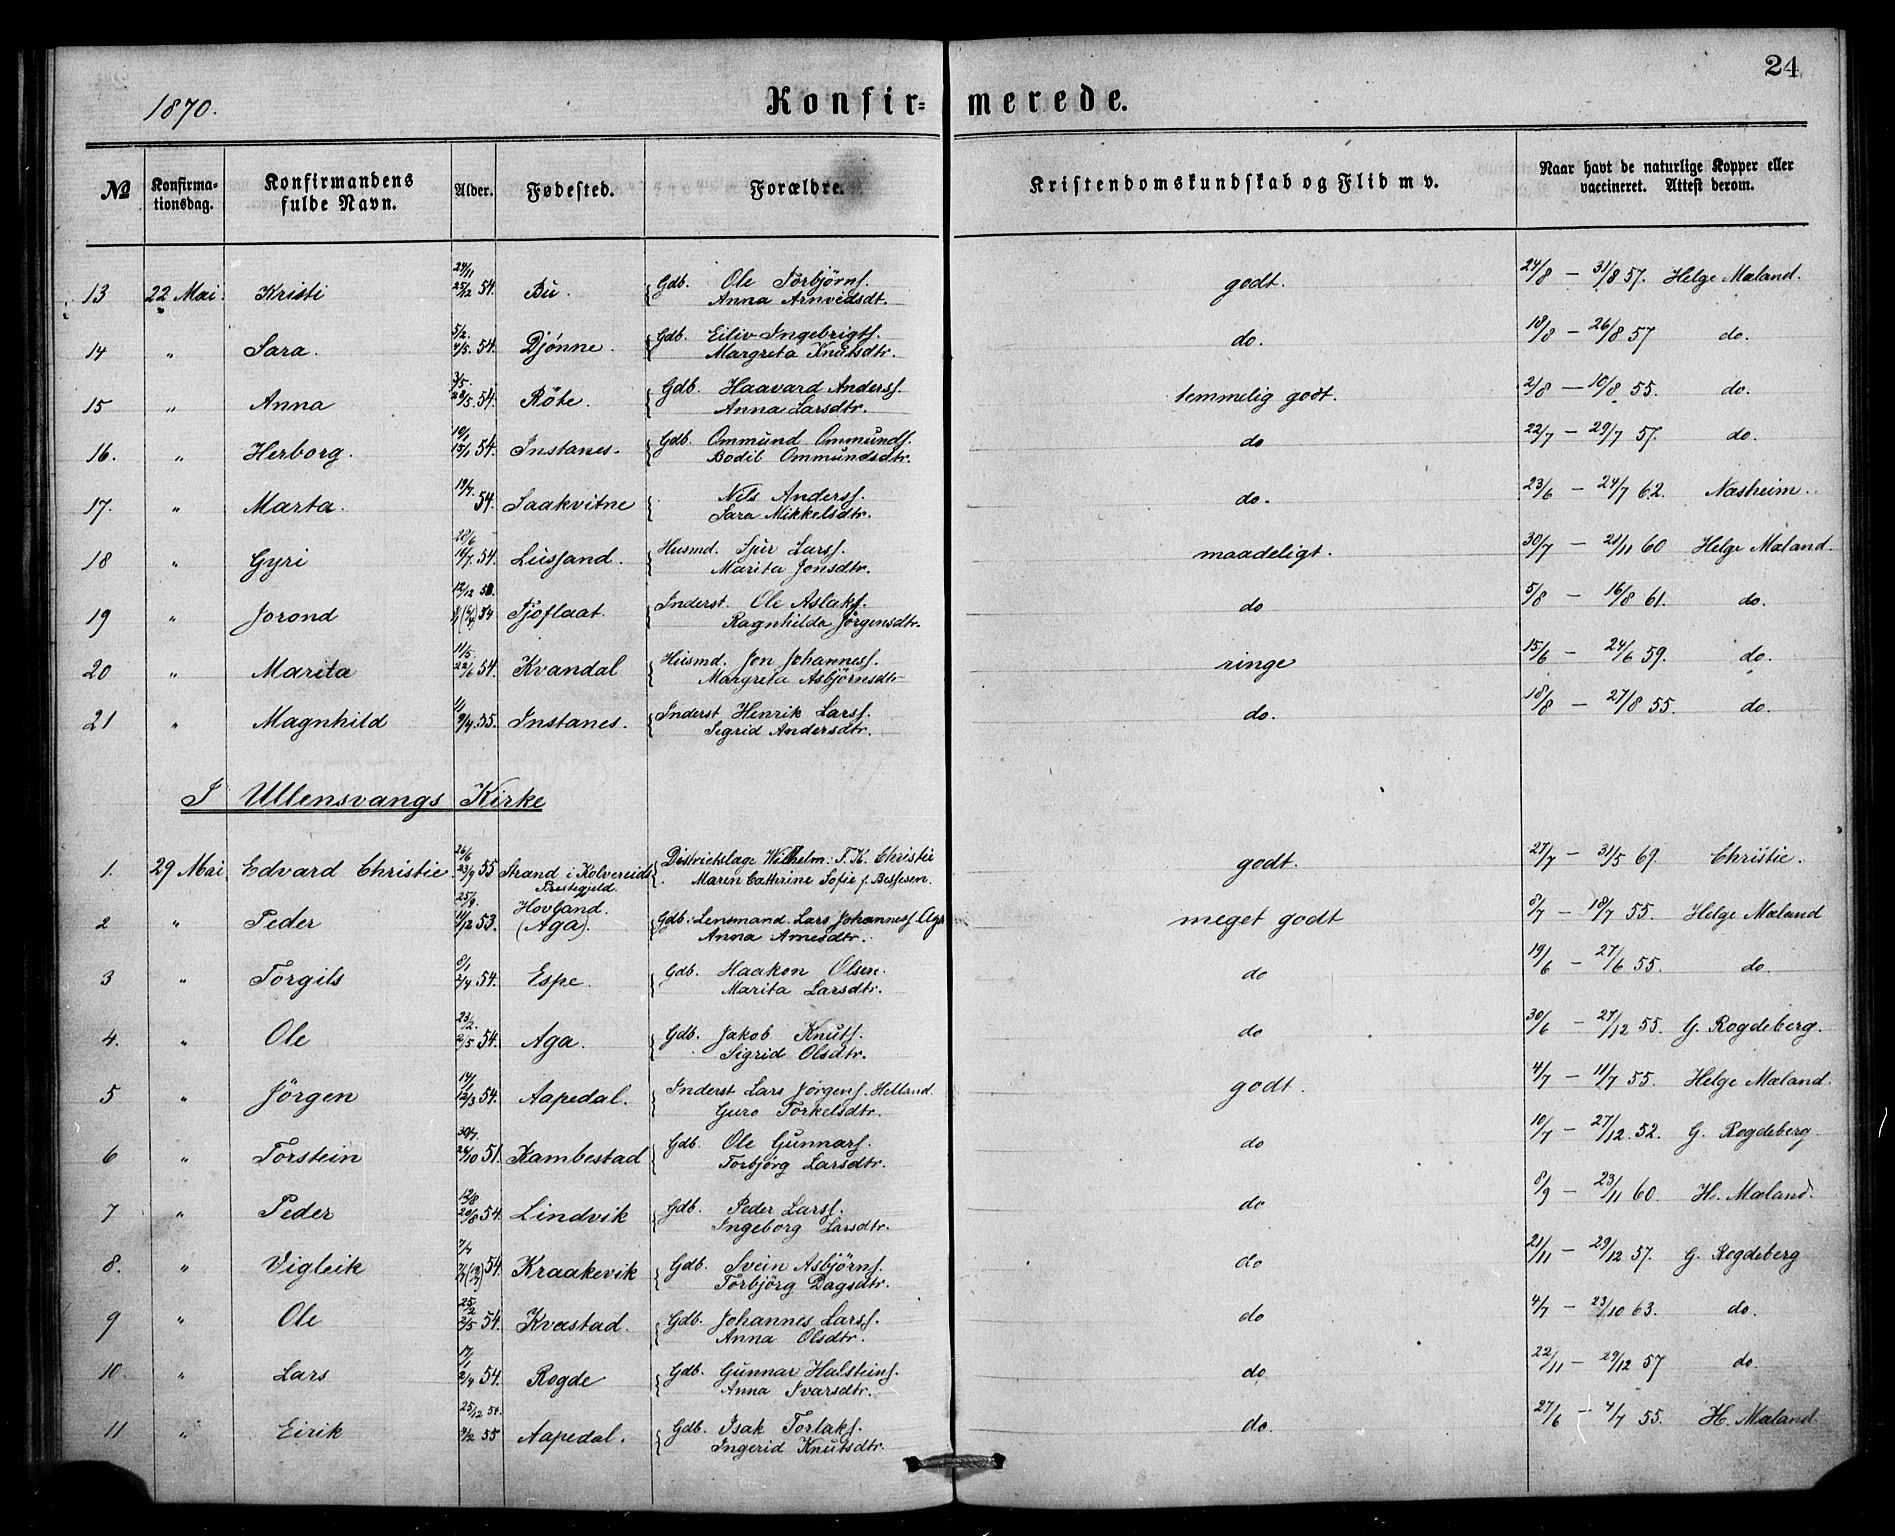 24
1870.
Konfir- merede.
№ Konfirma-tionsdag. Konfirmandens fulde Navn. Alder. Fødested. Forældre. Kristendomskundskab og Flid m v. Naar havt de naturlige Kopper eller vaccineret. Attest derom.
13 22 Mai. Kristi 24/11 25/12 54. Bu. Gdb. Ole Torbjörns. Anna Arnvidsdt. godt. 24/8 — 31/8 57. Helge Mæland.
14 " Sara. 5/2. 4/5. 54. Djönne. Gdb. Eiliv Ingebrigts. Margreta Knutsdtr. do. 18/8 — 26/8 57 do.
15 " Anna 3/5. 28/5. 54. Röte. Gdb. Haavard Anders. Anna Larsdtr. temmelig godt. 2/8 — 10/8 55. do.
16. " Herborg. 10/1 15/1 54. Instanes. Gdb. Ommund Ommunds. Bodil Ommundsdtr. do 22/7 — 29/7 57. do.
17. " Marta. 19/7. 54. Saakvitne Nils Anders. Sara Mikkelsdtr. do. 23/6 — 24/7 62. Næsheim.
18 " Gyri 28/6 16/7. 54. Lussand. Husmd. Sjur Lars. Marita Jonsdtr. maadeligt. 30/7 — 21/11 60 Helge Mæland.
19 " Jorond 12/12 53. 54 Tjoflaat. Inderst. Ole Aslaks. Ragnhilda Jörgensdtr. do 5/8 — 16/8 61. do.
20 " Marita 11/5. 22/6 54. Kvandal Husmd. Jon Johannes. Margreta Asbjörnsdtr ringe 15/6 — 24/6 59. do.
21 " Magnhild 1/1 9/4. 55. Instanes. Inderst Henrik Lars. Sigrid Andersdtr. do. 18/8 — 27/8 55. do.
I Ullensvangs Kirke
1. 29 Mai Edvard Christie 26/6 23/9 55 Strand i Kolvereids Prestegjeld. Districtslæge Wilhelm. F. K. Christie Maren Cathrine Sofie f. Bessesen. godt. 27/7 — 31/5 69. Christie.
2 " Peder 25/9. 11/12 53. Hovland. (Aga). Gdb. Lensmand Lars Johannes. Aga Anna Arnesdtr. meget godt 8/7 — 18/7 55. Helge Mæland
3 " Torgils 8/1 2/4 54. Espe. Gdb. Haakon Olsen. Marita Larsdtr. do 19/6 — 27/6 55. do.
4. " Ole 23/2. 2/5 54. Aga. Gdb. Jakob Knuts. Sigrid Olsdtr. do 30/6 — 27/12 55. G. Rogdeberg.
5 " Jörgen 14/1 12/3 54. Aapedal. Inderst Lars Jörgens. Helland. Guro Torkelsdtr. godt. 4/7 — 11/7 55. Helge Mæland.
6 " Torstein 30/7. 26/10 51. Kambestad Gdb. Ole Gunnars. Torbjörg Larsdtr. do 10/7 — 27/12. 52. G. Rogdeberg.
7 " Peder 12/8 20/8 54. Lindvik Gdb. Peder Lars. Ingeborg Larsdtr. do 8/9 — 23/11 60. H. Mæland.
8. " Vigleik 7/7 54. Kraakevik Gdb. Svein Asbjörns. Torbjörg Dagsdtr. do 21/11 — 29/12 57. G. Rogdeberg
9 " Ole 25/2 2/5 54. Kvæstad. Gdb. Johannes Lars. Anna Olsdtr. do 4/7 — 23/10 63. do.
10. " Lars 17/1 2/4 54. Rogde Gdb. Gunnar Halsteins. Anna Ivarsdtr. do 22/11 — 29/12 57 do.
11 " Eirik 25/12 54. 55 Aapedal. Gdb. Isak Torlaks. Ingerid Knutsdtr. do. 27/6 — 4/7 55. H. Mæland